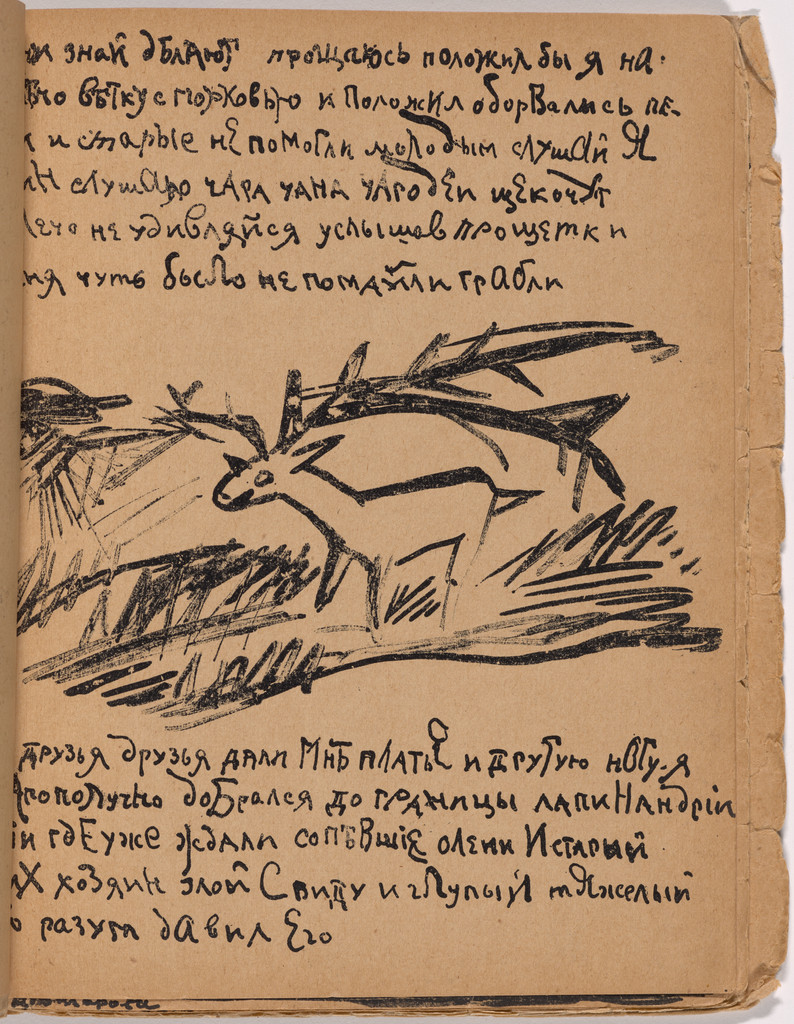 знай дѣлают прощаюсь положил бы я на
вѣтку с морковью и положил оборвались пе-
и старые не помогли молодым слушай я
слушаю чара чана чародеи щекочут
не удивляйся услышав про щетки
чуть было не помяли грабли
друзья друзья дали мнѣ платье и другую ногу. я
добрался до границы лапиНандріи
гдЕ уже ждали сопѣвшіе олени и старый
их хозяин злой с виду и глупый тяжелый
разум давил Его